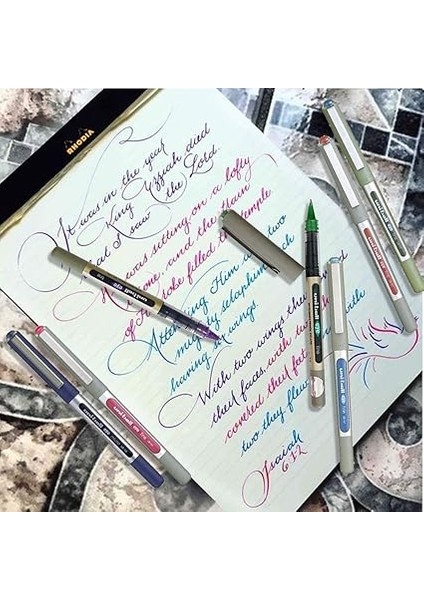 RHODIA
It was in the year
King Uzziah died
that I saw the Lord.
He was sitting on a lofty
throne, and the train
of His robe filled the temple.
Attending Him were two
mighty seraphim, each
having wings.
With two wings they
their faces, with two
covered their feet with
two they flew
Isaiah
6:1-2
uni-ball eye
uni-ball eye
uni-ball eye
uni-ball eye
uni-ball eye
uni-ball eye
uni-ball eye